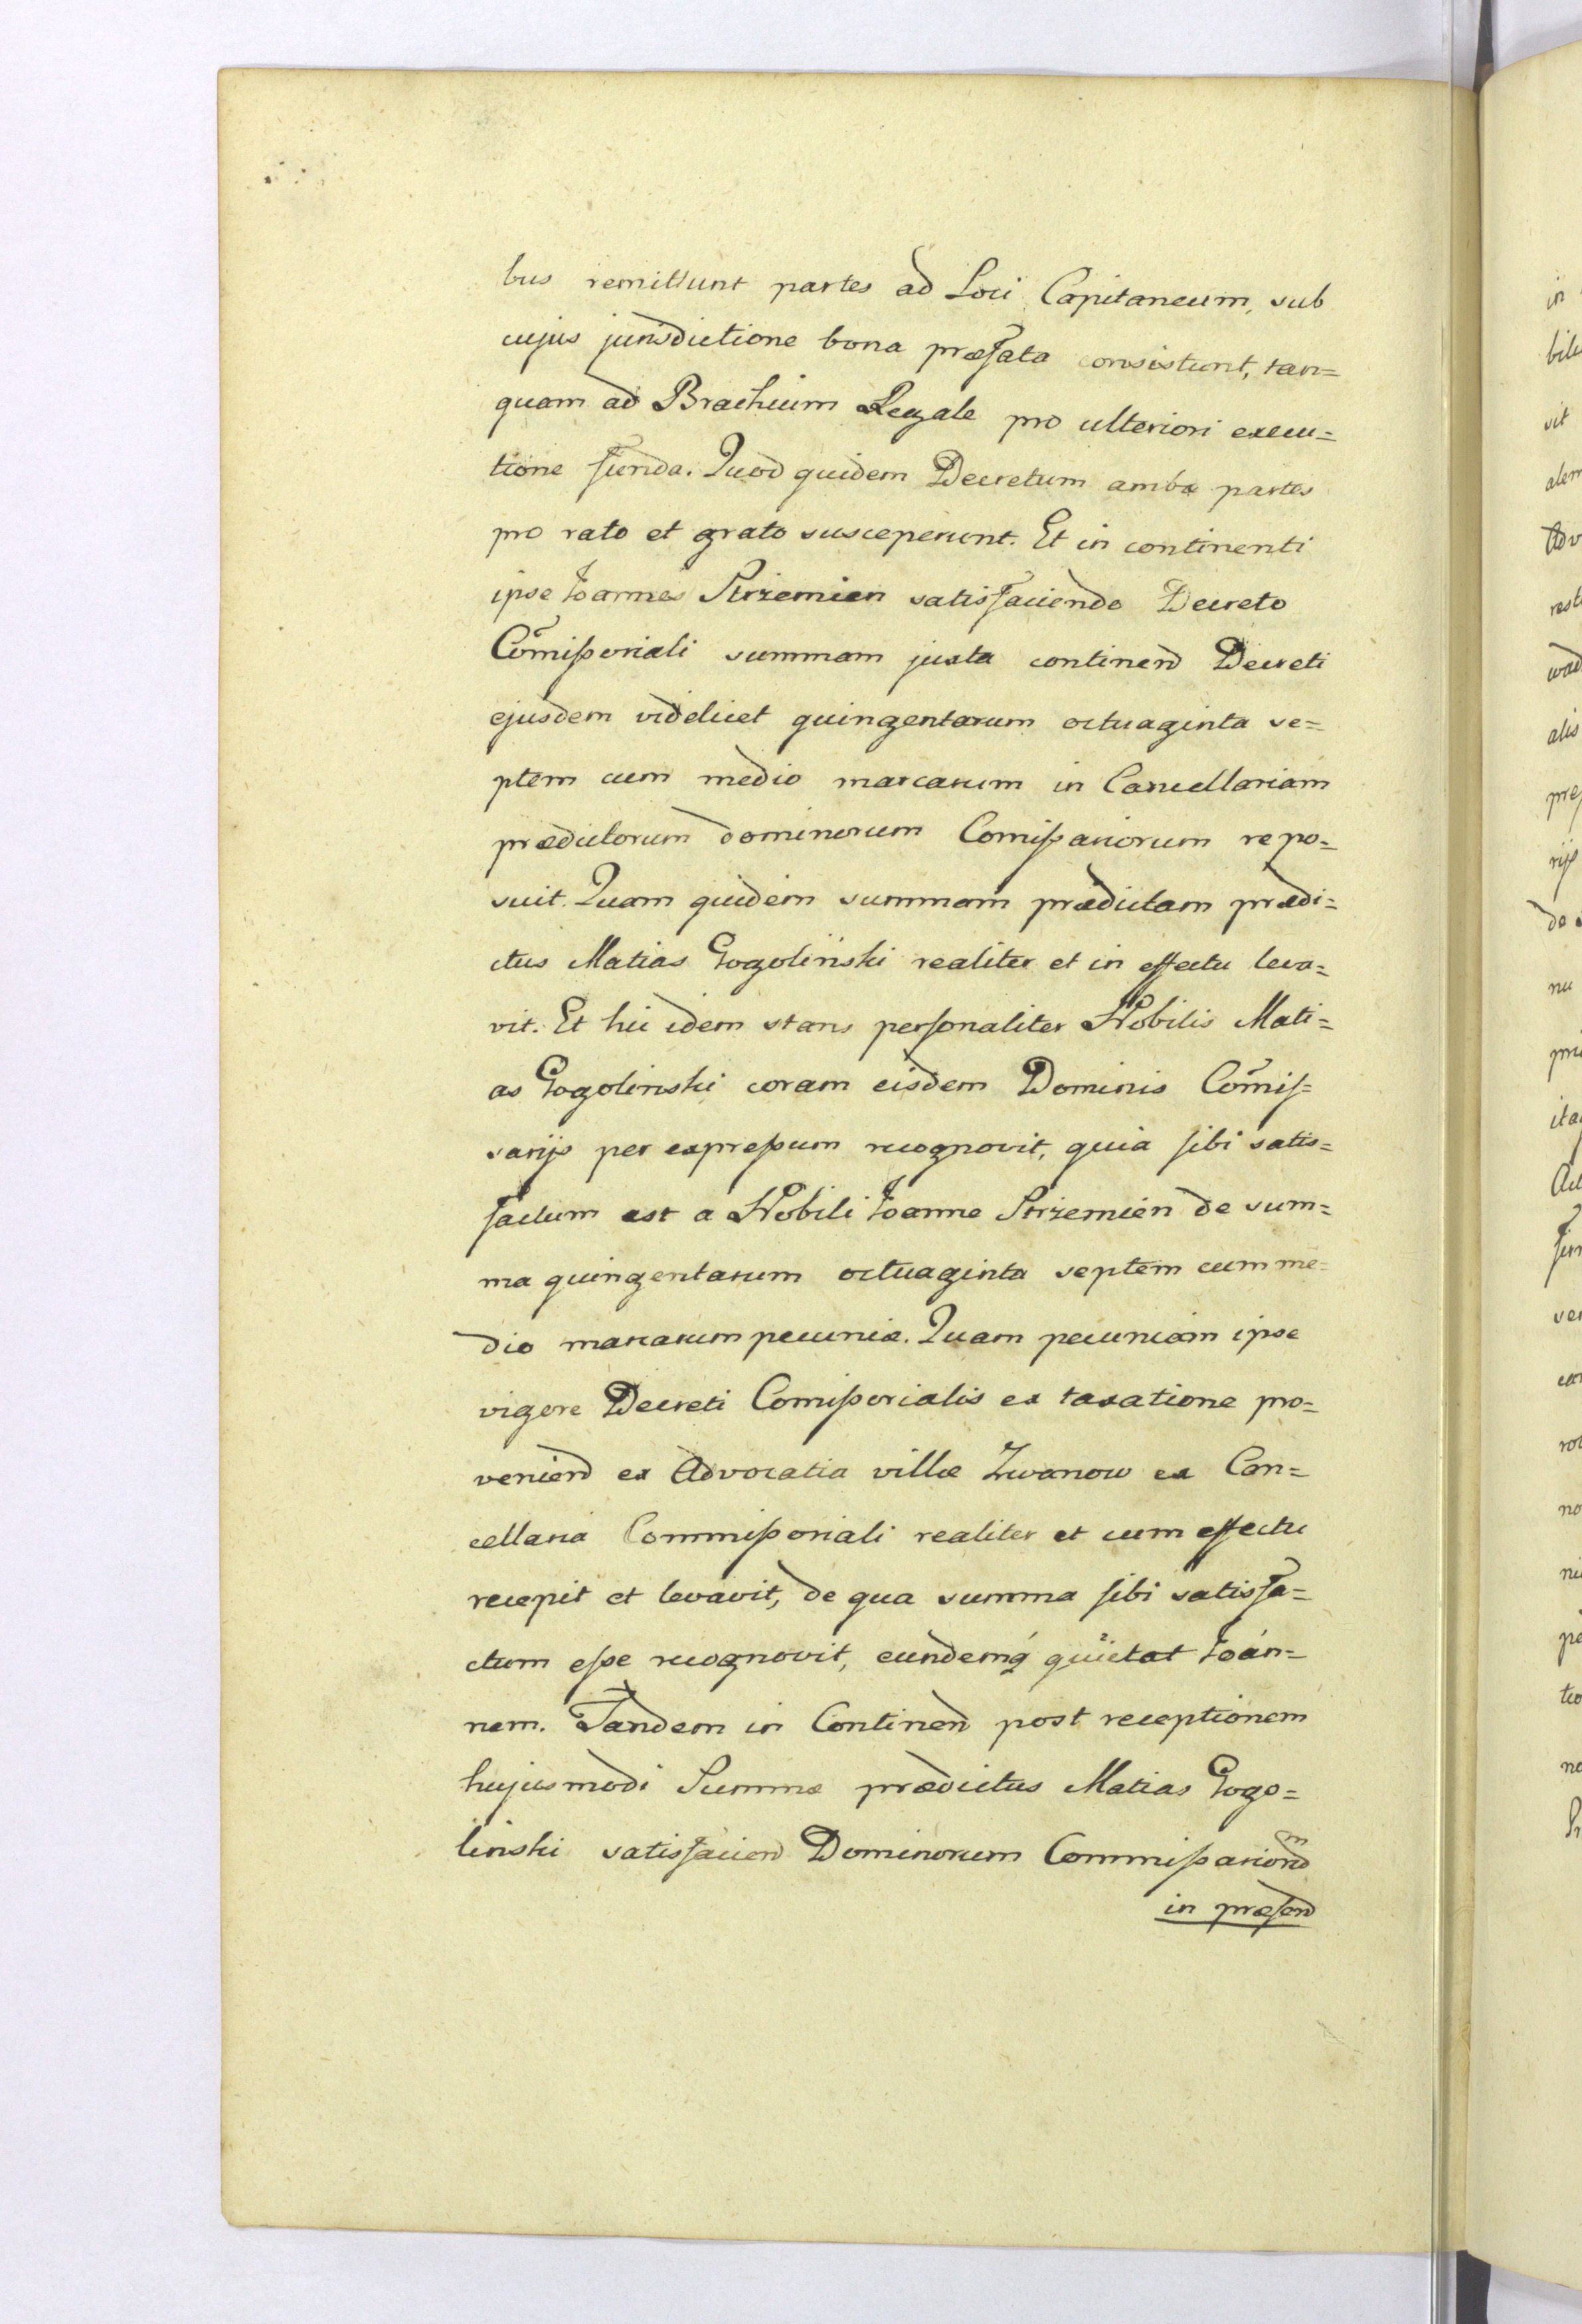 bus remittunt partes ad Loci Capitaneum, sub
cujus jurisdictione bona præfata consistunt, tan=
quam ad Brachium Regale pro ulteriori execu=
tione fienda. Quod quidem Decretum ambæ partes
pro rato et grato susceperunt. Et in continenti
ipse Joannes Strzemien satisfaciendo Decreto
Com̃ißoriali summam juxta continend Decreti
ejusdem videlicet quingentarum octuaginta se=
ptem cum medio marcarum in Cancellariam
prædictorum dominorum Comißariorum repo=
suit. Quam quidem summam prædictam prædi=
ctus Matias Gogoliński realiter et in effectu leva=
vit. Et hic idem stans perſonaliter Nobilis Mati=
as Gogolinski coram eisdem Dominis Com̃iſ=
sarijs per expreßum recognovit, quia ſibi satis=
factum est a Nobili Joanne Strzemien de sum=
ma quingentarum octuaginta septem cum me=
dio marcarum pecuniæ. Quam pecuniam ipse
vigore Decreti Comißorialis ex taxatione pro=
veniend ex Advocatia villæ Iwanow ex Can=
cellaria Commißoriali realiter et cum effectu
recepit et levavit, de qua summa ſibi satisfa=
ctum eße recognovit, eundemq́ quietat Joan=
nem. Tandem in Continen post receptionem
hujusmodi Summæ prædictus Matias Gogo=
linski satisfacien Dominorum Commißariond
in præſend